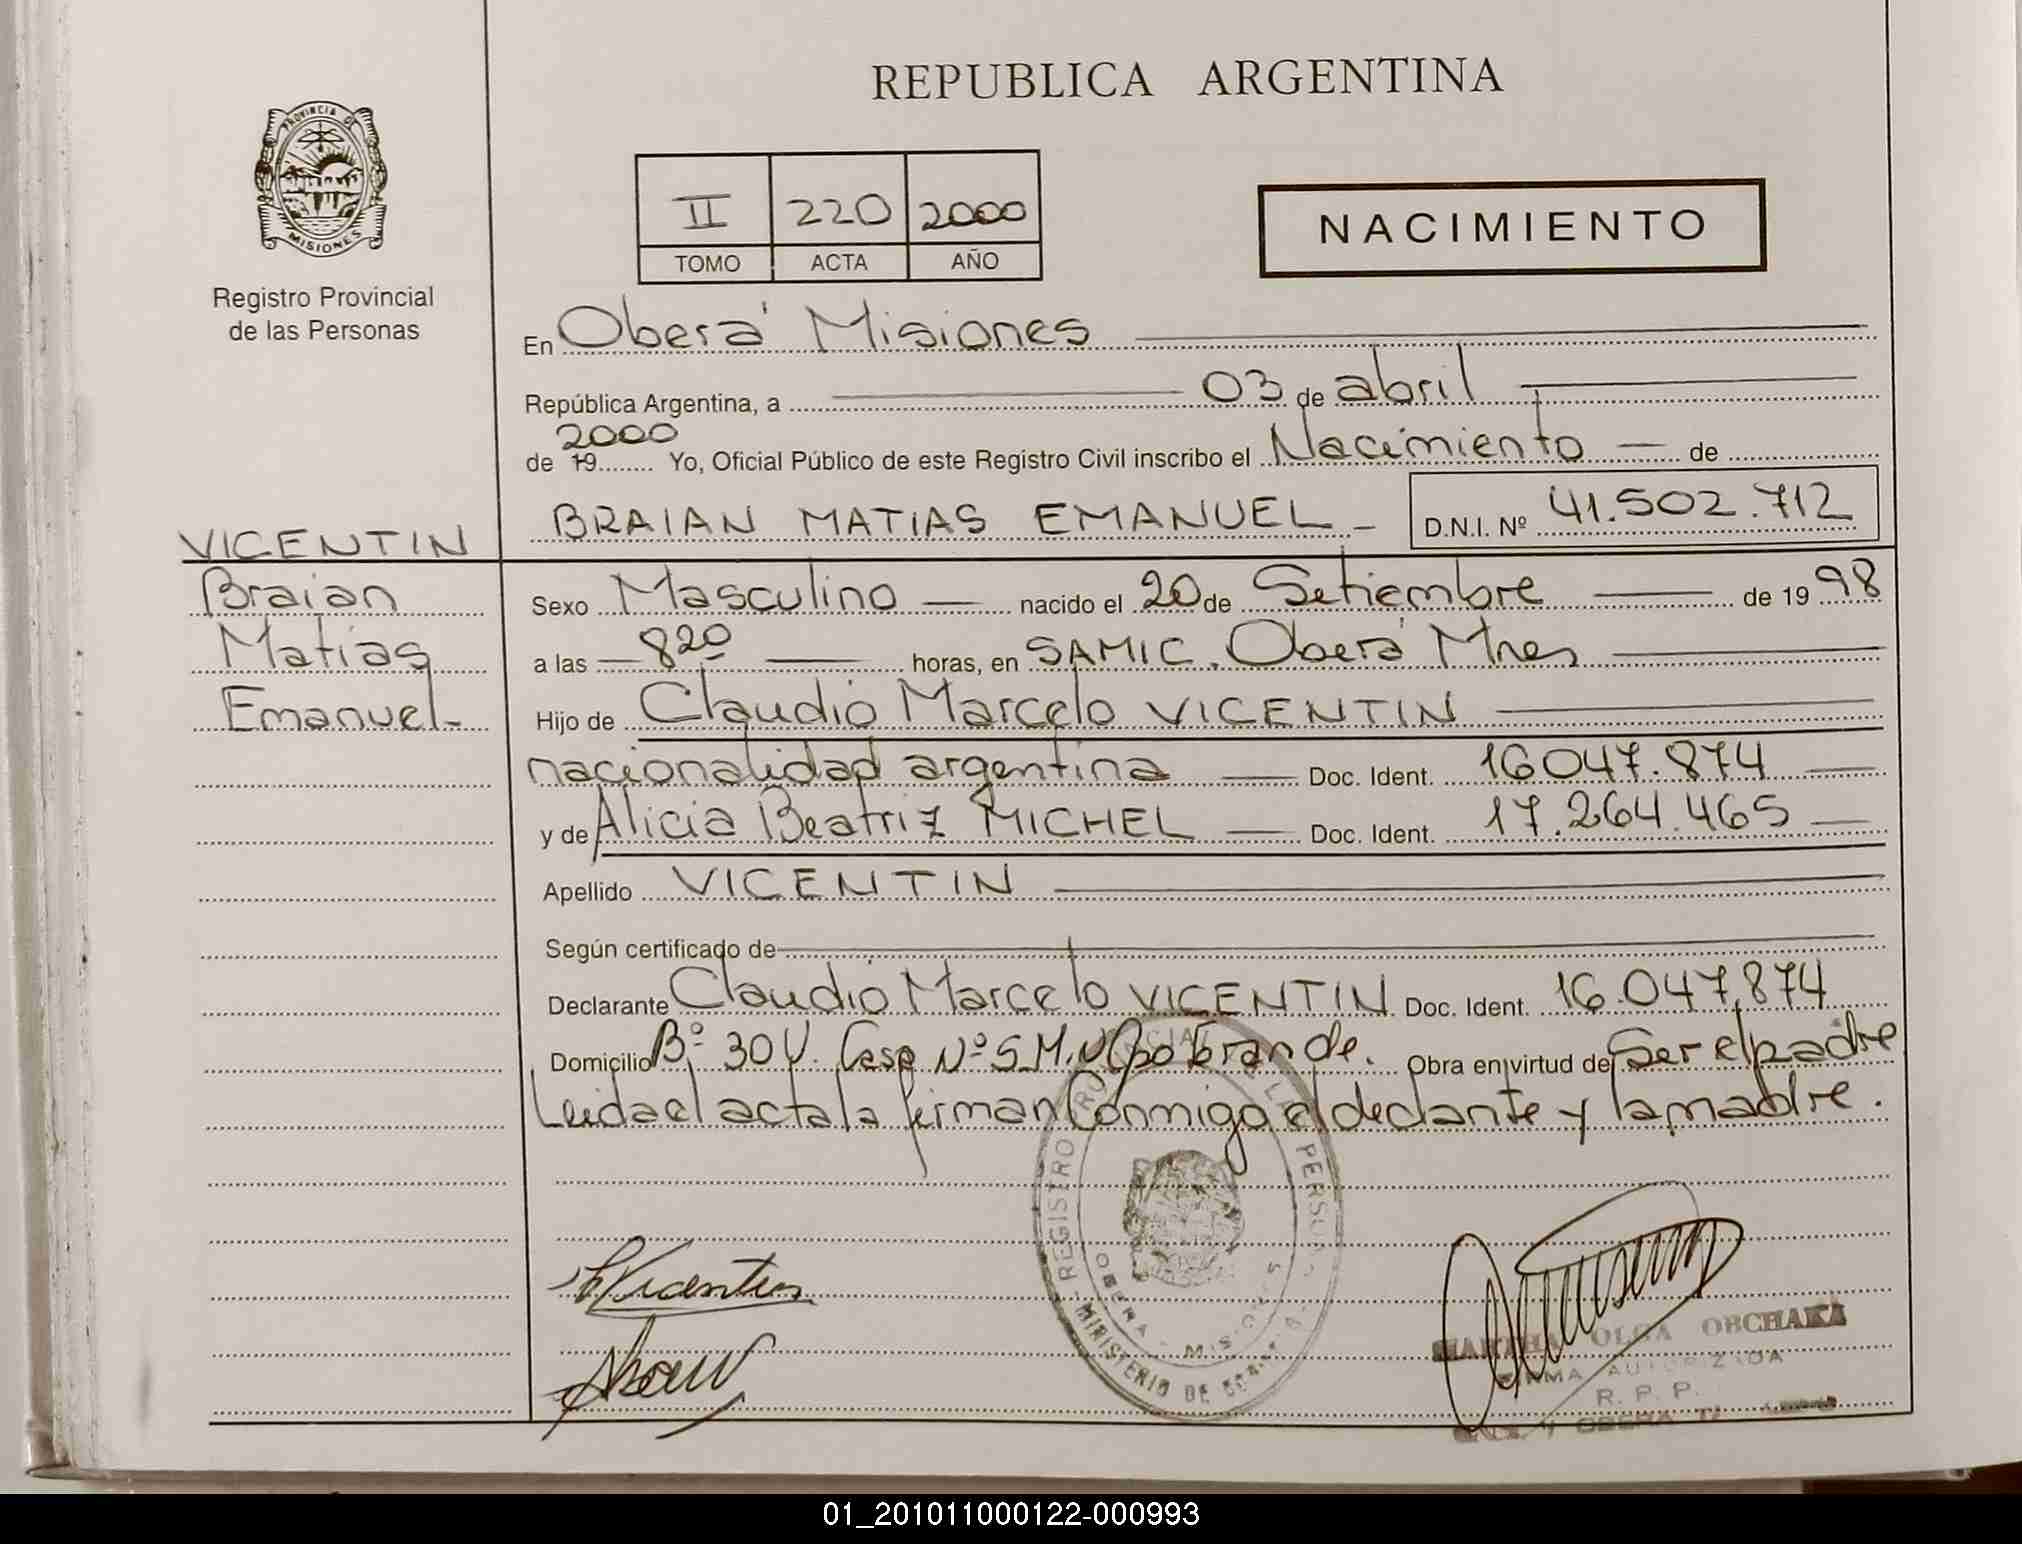 REPUBLICA ARGENTINA
PROVINCIA DE
MISIONES
Registro Provincial
de las Personas
II 220 2000
TOMO ACTA AÑO
NACIMIENTO
En Oberá Misiones
República Argentina, a 03 de abril
2000
de 19 Yo, Oficial Público de este Registro Civil inscribo el Nacimiento de
BRAIAN MATIAS EMANUEL D.N.I. Nº 41.502.712
VICENTIN
Braian
Matias
Emanuel
Sexo Masculino nacido el 20 de Setiembre de 19 98
a las 8 20 horas, en SAMIC. Oberá Mnes
Hijo de Claudio Marcelo VICENTIN
nacionalidad argentina Doc. Ident. 16047.874
y de Alicia Beatriz MICHEL Doc. Ident. 17.264.465
Apellido VICENTIN
Según certificado de
Declarante Claudio Marcelo VICENTIN Doc. Ident. 16.047.874
Domicilio Bº 30 V. Casa Nº 5 Grande. Obra en virtud de Ser el padre
Leida el acta la firman Conmigo el declante y la madre.
REGISTRO PROVINCIAL DE LAS PERSONAS
OBERA - MISIONES
MINISTERIO DE
Vicentin
MARTHA OLGA OBCHAKA
FIRMA AUTORIZADA
R. P. P.
OBERA
01_201011000122-000993